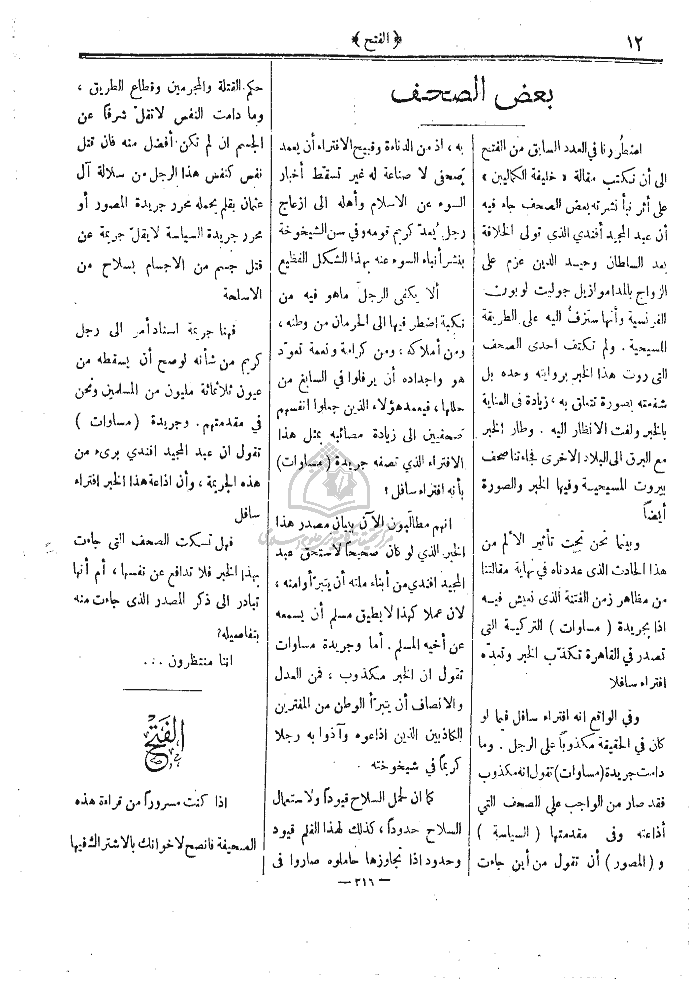 ١٢
﴿ الفتح ﴾
بعض الصحف
اضطررنا في العدد السابق من الفتح
الى أن نكتب مقالة « خليفة الكماليين »
على أثر نبأ نشرته بعض الصحف جاء فيه
أن عبد المجيد أفندي الذي تولى الخلافة
بعد السلطان وحيد الدين عزم على
الزواج بالمدامو ازيل جوليت لوبورت
الفرنسية وأنها ستزف اليه على الطريقة
المسيحية . ولم تكتف احدى الصحف
التى روت هذا الخبر بروايته وحده بل
شفعته بصورة تتعلق به ، زيادة في العناية
بالخبر ولفت الانظار اليه . وطار الخبر
مع البرق الى البلاد الاخرى فجاءتنا صحف
بيروت المسيحية وفيها الخبر والصورة
أيضاً
وبينما نحن تحت تأثير الالم من
هذا الحادث الذى عددناه في نهاية مقالتنا
من مظاهر زمن الفتنة الذى نعيش فيه
اذا بجريدة ( مساوات ) التركية التى
تصدر في القاهرة تكذّب الخبر وتعدّه
افتراء سافلا
وفي الواقع انه افتراء سافل فيما لو
كان في الحقيقة مكذوباً على الرجل . وما
دامت جريدة ( مساوات ) تقول انه مكذوب
فقد صار من الواجب على الصحف التي
أذاعته وفى مقدمتها ( السياسة )
و ( المصور ) أن تقول من أين جاءت
به ، اذ من الدناءة وقبيح الافتراء أن يعمد
صحفي لا صناعة له غير تسقط أخبار
السوء عن الاسلام وأهله الى ازعاج
رجل يُعدّ كريم قومه وفي سن الشيخوخة
بنشر أنباء السوء عنه بهذا الشكل الفظيع
ألا يكفى الرجل ماهو فيه من
نكبة اضطر فيها الى الحرمان من وطنه ،
ومن أملاكه ، ومن كرامة ونعمة تعوّد
هو واجداده أن يرفلوا في السابغ من
حللها ، فيعمد هؤلاء الذين جعلوا انفسهم
صحفيين الى زيادة مصائبه بمثل هذا
الافتراء الذي تصفه جريدة ( مساوات )
بأنه افتراء سافل ؟
انهم مطالبون الآن ببيان مصدر هذا
الخبر الذي لو كان صحيحاً لاستحق عبد
المجيد افندي من أبناء ملته أن يتبرءوا منه ،
لان عملا كهذا لا يطيق مسلم أن يسمعه
عن أخيه المسلم . أما وجريدة مساوات
تقول ان الخبر مكذوب ، فمن العدل
والانصاف أن يتبرأ الوطن من المفترين
الكاذبين الذين اذاعوه وآذوا به رجلا
كريماً في شيخوخته
كما ان لحمل السلاح قيوداً ولاستعمال
السلاح حدوداً ، كذلك لهذا القلم قيود
وحدود اذا تجاوزها حاملوه صاروا فى
حكم القتلة والمجرمين وقطاع الطريق ،
وما دامت النفس لا تقلّ شرفاً عن
الجسم ان لم تكن أفضل منه فان قتل
نفس كنفس هذا الرجل من سلالة آل
عثمان بقلم يحمله محرر جريدة المصور أو
محرر جريدة السياسة لايقلّ جريمة عن
قتل جسم من الاجسام بسلاح من
الاسلحة
فهنا جريمة اسناد أمر الى رجل
كريم من شأنه لو صح أن يسقطه من
عيون ثلاثمائة مليون من المسلمين ونحن
في مقدمتهم . وجريدة ( مساوات )
تقول ان عبد المجيد افندي برىء من
هذه الجريمة ، وأن اذاعة هذا الخبر افتراء
سافل
فهل تسكت الصحف التى جاءت
بهذا الخبر فلا تدافع عن نفسها ، أم أنها
تبادر الى ذكر المصدر الذى جاءت منه
بتفاصيله؟
اننا منتظرون ...
الفتح
اذا كنت مسروراً من قراءة هذه
الصحيفة فانصح لاخوانك بالاشتراك فيها
— ٣١٦ —